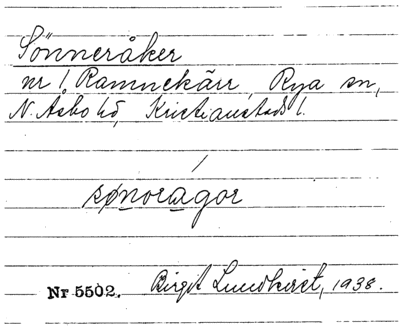 Sönneråker
nr 1. Ramnekärr, Rya sn,
N. Åsbo hd, Kristianstads l.
/
sønoragor
Nr 5502. Birgit Lundkvist, 1938.